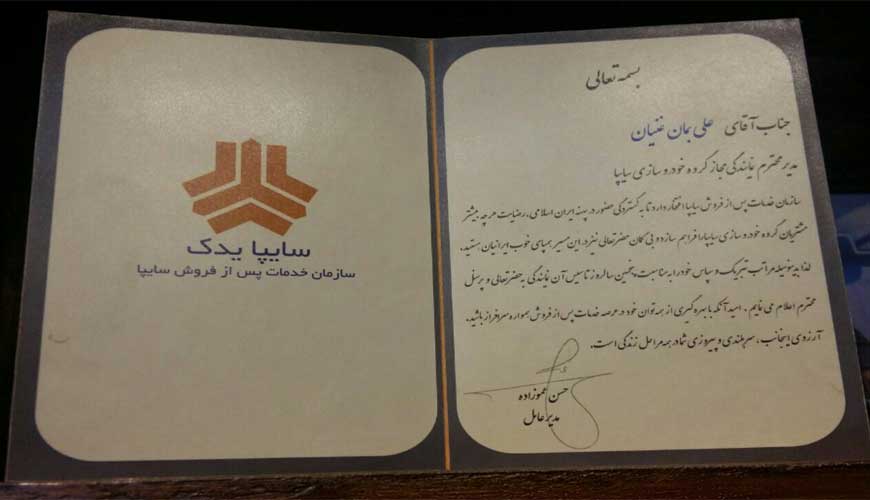 بسمه تعالی
جناب آقای علی بمان غنیان
مدیر محترم نمایندگی مجاز گروه خودروسازی سایپا
سازمان خدمات پس از فروش سایپا افتخار دارد تا به گستردگی حضور در پهنه ایران اسلامی، رضایت هرچه بیشتر
مشتریان گروه خودروسازی سایپا را فراهم سازد و بی گمان حضرتعالی نیز در این مسیر همپای خوب ایرانیان هستید.
لذا بدینوسیله مراتب تبریک و سپاس خود را به مناسبت پنجمین سالروز تاسیس آن نمایندگی به حضرتعالی و پرسنل
محترم اعلام می نمایم. امید آنکه با بهره گیری از همه توان خود در عرصه خدمات پس از فروش همواره سرافراز باشید.
آرزوی اینجانب، سربلندی و پیروزی شما در همه مراحل زندگی است.
حسن عموزاده
مدیرعامل
سایپا یدک
سازمان خدمات پس از فروش سایپا